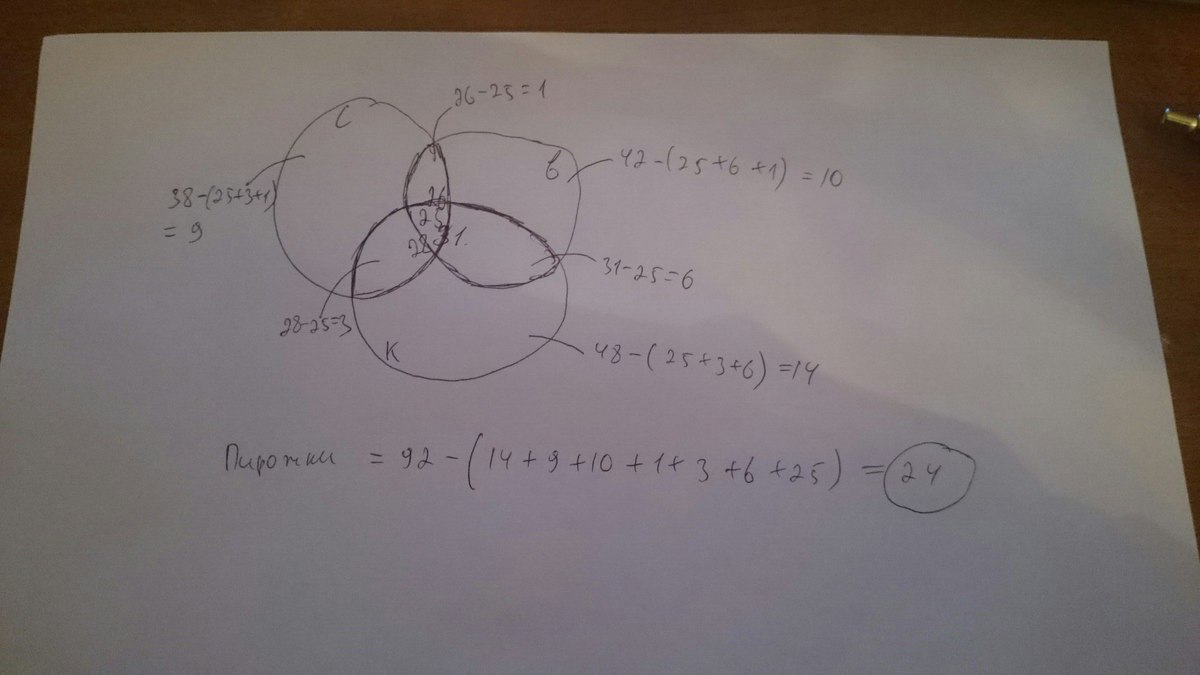 26-25=1
С
В
42-(25+6+1)=10
38-(25+3+1)
= 9
26
25
28 31.
31-25=6
28-25=3
К
48-(25+3+6)=14
Пирожки = 92-(14+9+10+1+3+6+25) = 24